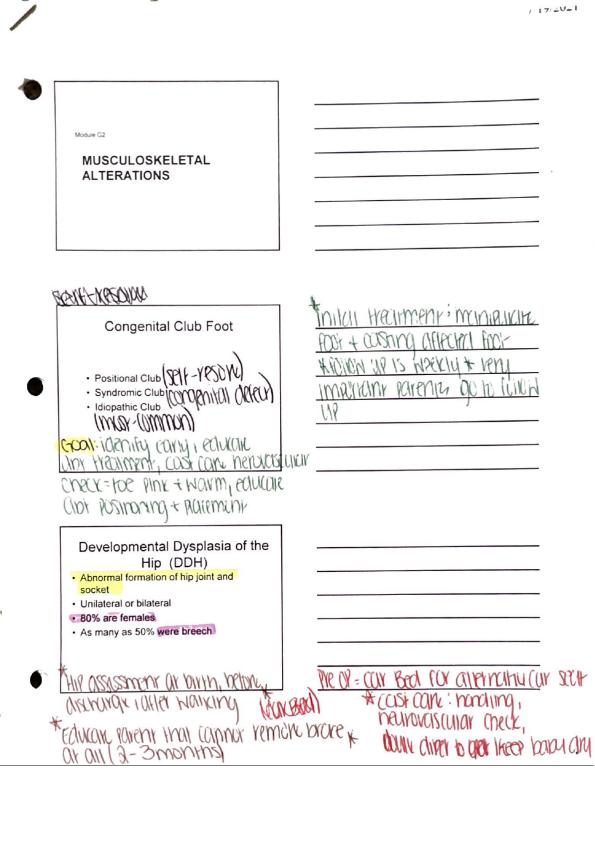 Module G2
MUSCULOSKELETAL
ALTERATIONS
Congenital Club Foot
• Positional Club (self-resolve)
• Syndromic Club (congenital defect)
• Idiopathic Club
(most-common)
Goal: identify early, educate
treatment, cast care neurovascular
check = toe pink + warm, educate
abt positioning + placement
* Initial treatment: manipulate
foot + casting affected foot
follow up is weekly * very
important parents go to follow
up
Developmental Dysplasia of the
Hip (DDH)
• Abnormal formation of hip joint and
socket
• Unilateral or bilateral
• 80% are females
• As many as 50% were breech
* Hip assessment at birth, before
discharge, after walking
* Educate parent that cannot remove brace *
at all (2-3 months)
Pre OP = car Bed for alternative car seat
(car Bed)
* cast care: handling,
neurovascular check,
double diaper to keep baby dry